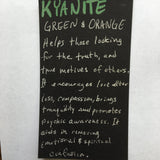 KYANITE
GREEN & ORANGE
Helps those looking
for the truth, and
true motives of others.
It encourages love after
loss, compassion, brings
tranquility and promotes
psychic awareness. It
aids in removing
emotional & spiritual
confusion.